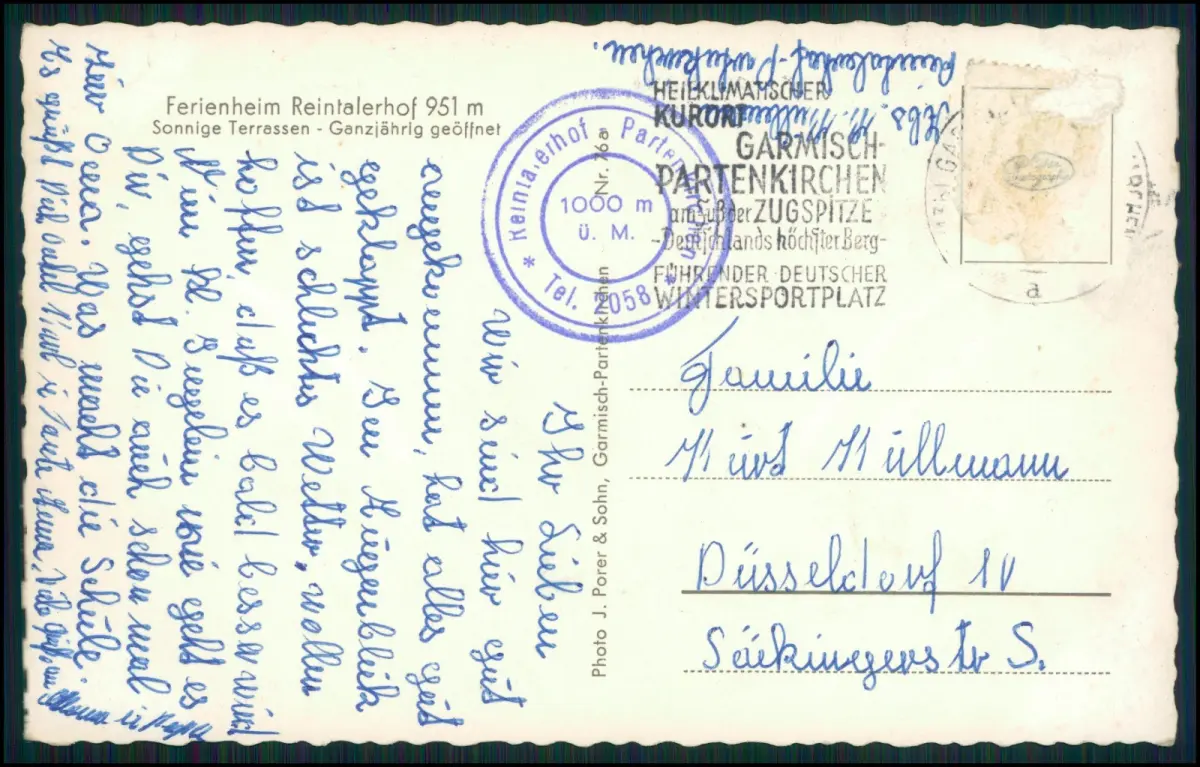 Ferienheim Reintalerhof 951 m
Sonnige Terrassen - Ganzjährig geöffnet
Ihr Lieben
Wir sind hier gut
angekommen, hat alles gut
geklappt. Im Augenblick
ist schlechtes Wetter, wollen
hoffen, daß es bald besser wird
Nun kl. wie geht es
Dir, gehst Du auch schon mal
Was macht die Schule.
Es grüßt Dich Onkel u Tante
Mama u Papa
Photo J. Porer & Sohn, Garmisch-Partenkirchen Nr. 76a
Reintalerhof - Partenkirchen
1000 m
ü. M.
* Tel. 2058 *
Reintalerhof-Partenkirchen.
Abs. K.
HEILKLIMATISCHER
KURORT
GARMISCH-
PARTENKIRCHEN
am Fuß der ZUGSPITZE
-Deutschlands höchster Berg-
FÜHRENDER DEUTSCHER
WINTERSPORTPLATZ
a
Familie
Kurt Küllmann
Düsseldorf 10
Säckingerstr 5.